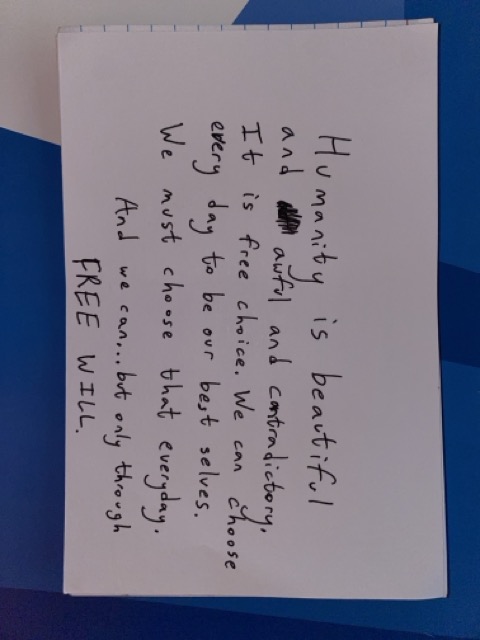 Humanity is beautiful
and awful and contradictory.
It is free choice. We can choose
every day to be our best selves.
We must choose that everyday.
And we can... but only through
FREE WILL.